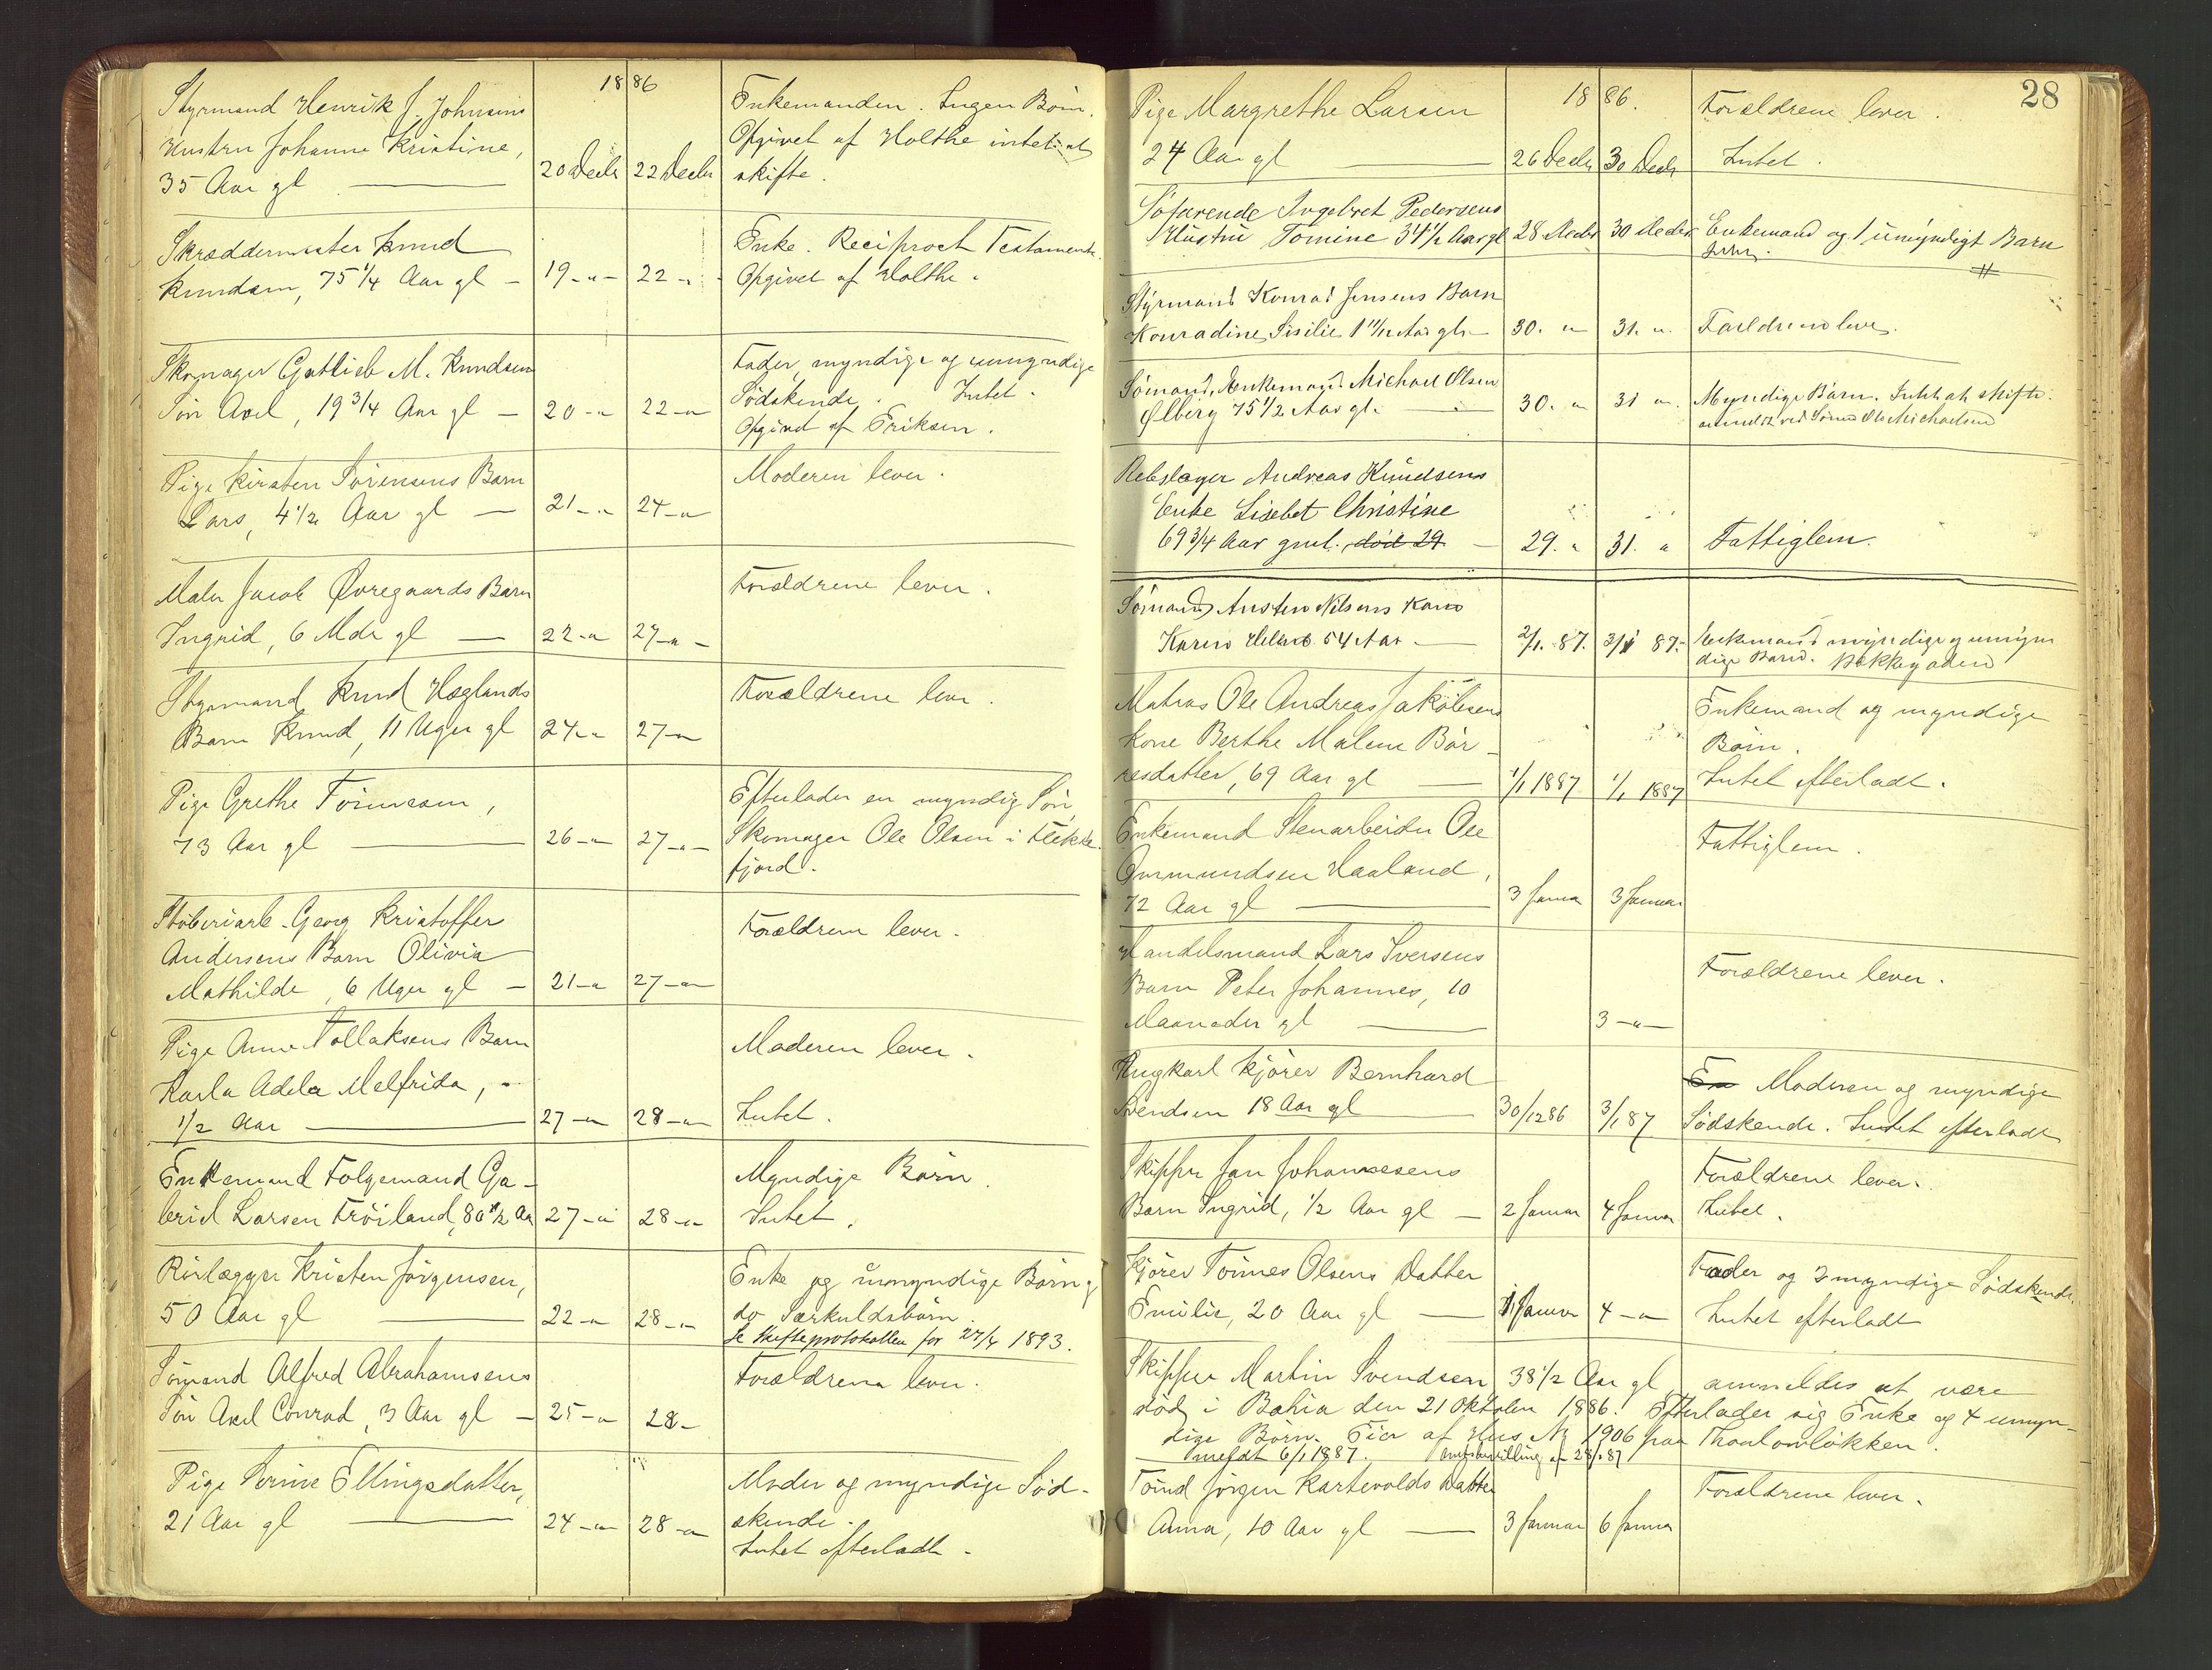 1886
Styrmand Henrik J. Johnsens
Hustru Johanne Kristine,
35 Aar gl — 20 Decbr 22 Decbr
Enkemanden. Ingen Børn.
Opgivet af Holthe intet at
skifte.
Skræddermester Knud
Knudsen, 75 1/4 Aar gl — 19 -"- 22 -"-
Enke. Reciproct Testament.
Opgivet af Holthe.
Skomager Gotlieb M. Knudsens
Søn Axel, 19 3/4 Aar gl — 20 -"- 22 -"-
Fader, myndige og umyndige
Sødskende. Intet.
Opgivet af Eriksen.
Pige Kirsten Sørensens Barn
Lars, 4 1/2 Aar gl — 21 -"- 24 -"-
Moderen lever.
Maler Jacob Øvregaards Barn
Ingrid, 6 Mdr gl — 22 -"- 27 -"-
Forældrene lever.
Styrmand Knud Høglands
Barn Knud, 11 Uger gl 24 -"- 27 -"-
Forældrene lever.
Pige Grethe Tønnesen,
73 Aar gl — 26 -"- 27 -"-
Efterlader en myndig Søn,
Skomager Ole Olsen i Flekke-
fjord.
Støberiarb. Georg Kristoffer
Andersens Barn Olivia
Mathilde, 6 Uger gl — 21 -"- 27 -"-
Forældrene lever.
Pige Anne Tollaksens Barn
Karla Adela Melfrida,
1/2 Aar — 27 -"- 28 -"-
Moderen lever.
Intet.
Enkemand Følgemand Ga-
briel Larsen Frøiland, 80 1/2 Aar 27 -"- 28 -"-
Myndige Børn.
Intet.
Rørlægger Kristen Jørgensen,
50 Aar gl — 22 -"- 28 -"-
Enke og umyndige Børn og
do Særkuldsbørn.
Se Skifteprotokollen for 27/4 1893.
Sømand Alfred Abrahamsens
Søn Axel Conrad, 3 Aar gl — 25 -"- 28 -
Forældrene lever.
Pige Serine Ellingsdatter,
21 Aar gl — 24 -"- 28 -"-
Moder og myndige Sød-
skende.
Intet efterladt.
28
1886.
Pige Margrethe Larsen
24 Aar gl — 26 Decbr 30 Decbr
Forældrene lever.
Intet.
Søfarende Ingebret Pedersens
Hustru Tomine 34 1/2 Aar gl 28 Decbr 30 Decbr
Enkemand og 1 umyndigt Barn
Intet.
Styrmand Konrad Jensens Barn
Konradine Sisilie 1 11/12 Aar gl. — 30. " 31. "
Forældrene lever.
Sømand, Enkemand Michael Olsen
Ølberg 75 1/2 Aar gl. — 30. " 31 "
Myndige Børn. Intet at skifte.
anmeldt ved Sømd Ole Michaelsen
Rebslager Andreas Knudsens
Enke Lisebet Christine
69 3/4 Aar gml. død 29 — 29. " 31. "
Fattiglem.
Sømand Austen Nilsens Kone
Karen 54 Aar — 2/1. 87. 3/1 87.
Enkemand myndige og umyn
dige Børn. Bakkegaden
Matros Ole Andreas Jakobsens
Kone Berthe Malene Bør-
resdatter, 69 Aar gl — 1/1 1887 1/1 1887
Enkemand og myndige
Børn.
Intet efterladt.
Enkemand Stenarbeider Ole
Ommundsen Haaland,
72 Aar gl — 3 Januar 3 Januar
Fattiglem.
Handelsmand Lars Iversens
Barn Peter Johannes, 10
Maaneder gl — 3 -"-
Forældrene lever.
Ungkarl Kjører Bernhard
Svendsen 18 Aar gl — 30/12 86 3/1 87
En Moderen og myndige
Sødskende. Intet efterladt
Skipper Jan Johannesens
Barn Ingrid, 1/2 Aar gl — 2 Januar 4 Januar
Forældrene lever.
Intet.
Kjører Tønnes Olsens Datter
Emilie, 20 Aar gl — 1 Januar 4 -"-
Fader og 2 myndige Sødskende.
Intet efterladt
Skipper Martin Svendsen 38 1/2 Aar gl anmeldes at være
død i Bahia den 21 Oktober 1886. Efterlader sig Enke og 4 umyn-
dige Børn. Eier af Hus No 1906 paa Thoulowløkken.
Anmeldt 6/1 1887. Amtsbevilling af 28/1 87
Tømd Jørgen Kartevolds Datter
Anna, 10 Aar gl — 3 Januar 6 Januar
Forældrene lever.